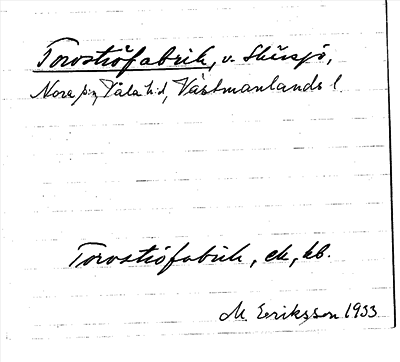 Torvströfabrik, v. Skärsjö,
Nora sn, Våla hd, Västmanlands l.
Torvströfabrik, ek, kb.
M. Eriksson 1933